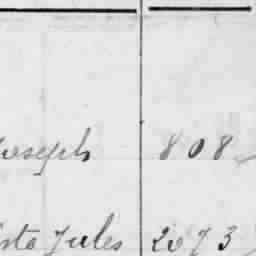 Joseph 808
Jules 2073